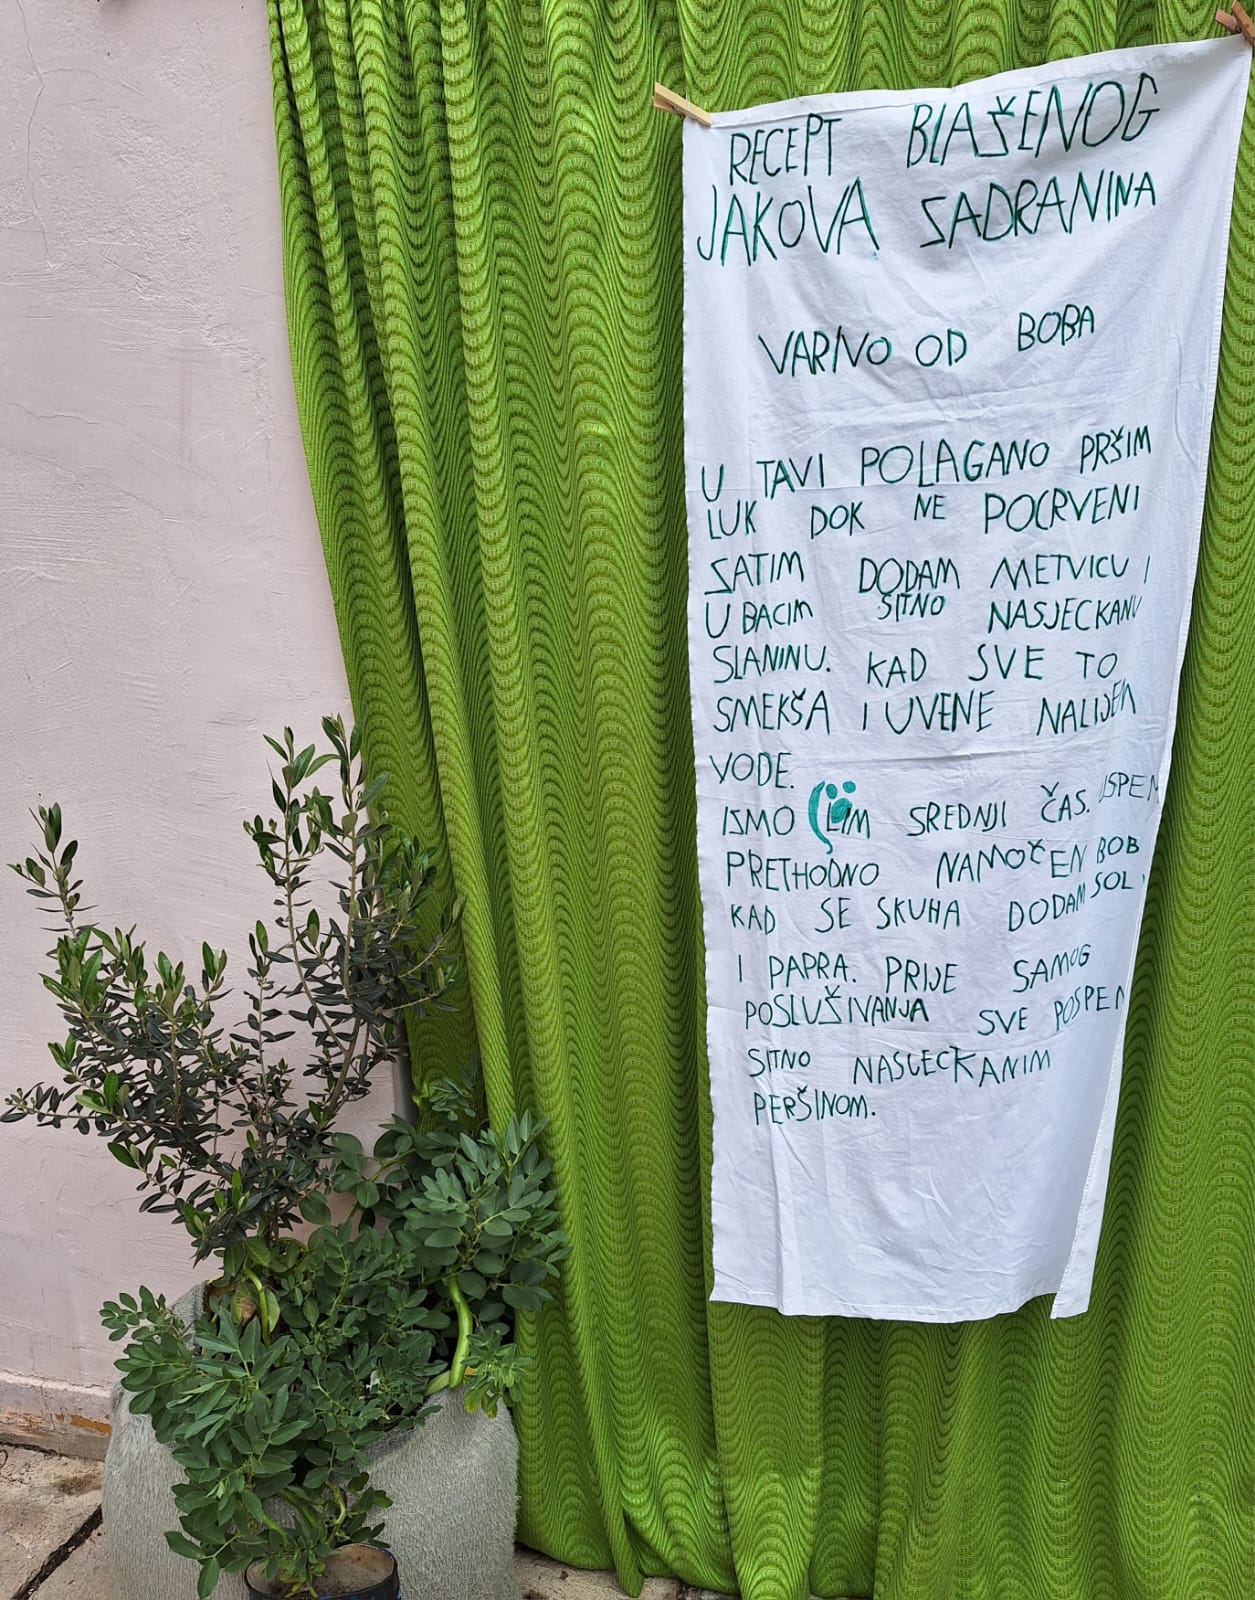 RECEPT BLAŠENOG
JAKOVA SADRANINA
VARIVO OD BOBA
U TAVI POLAGANO PRŠIM
LUK DOK NE POCRVENI
SATIM DODAM METVICU I
UBACIM SITNO NASJECKANU
SLANINU. KAD SVE TO
SMEKŠA I UVENE NALIJEM
VODE.
ISMO LIM SREDNJI ČAS. USPEM
PRETHODNO NAMOČEN BOB
KAD SE SKUHA DODAM SOL
I PAPRA. PRIJE SAMOG
POSLUŠIVANJA SVE POSPEM
SITNO NASJECKANIM
PERŠINOM.